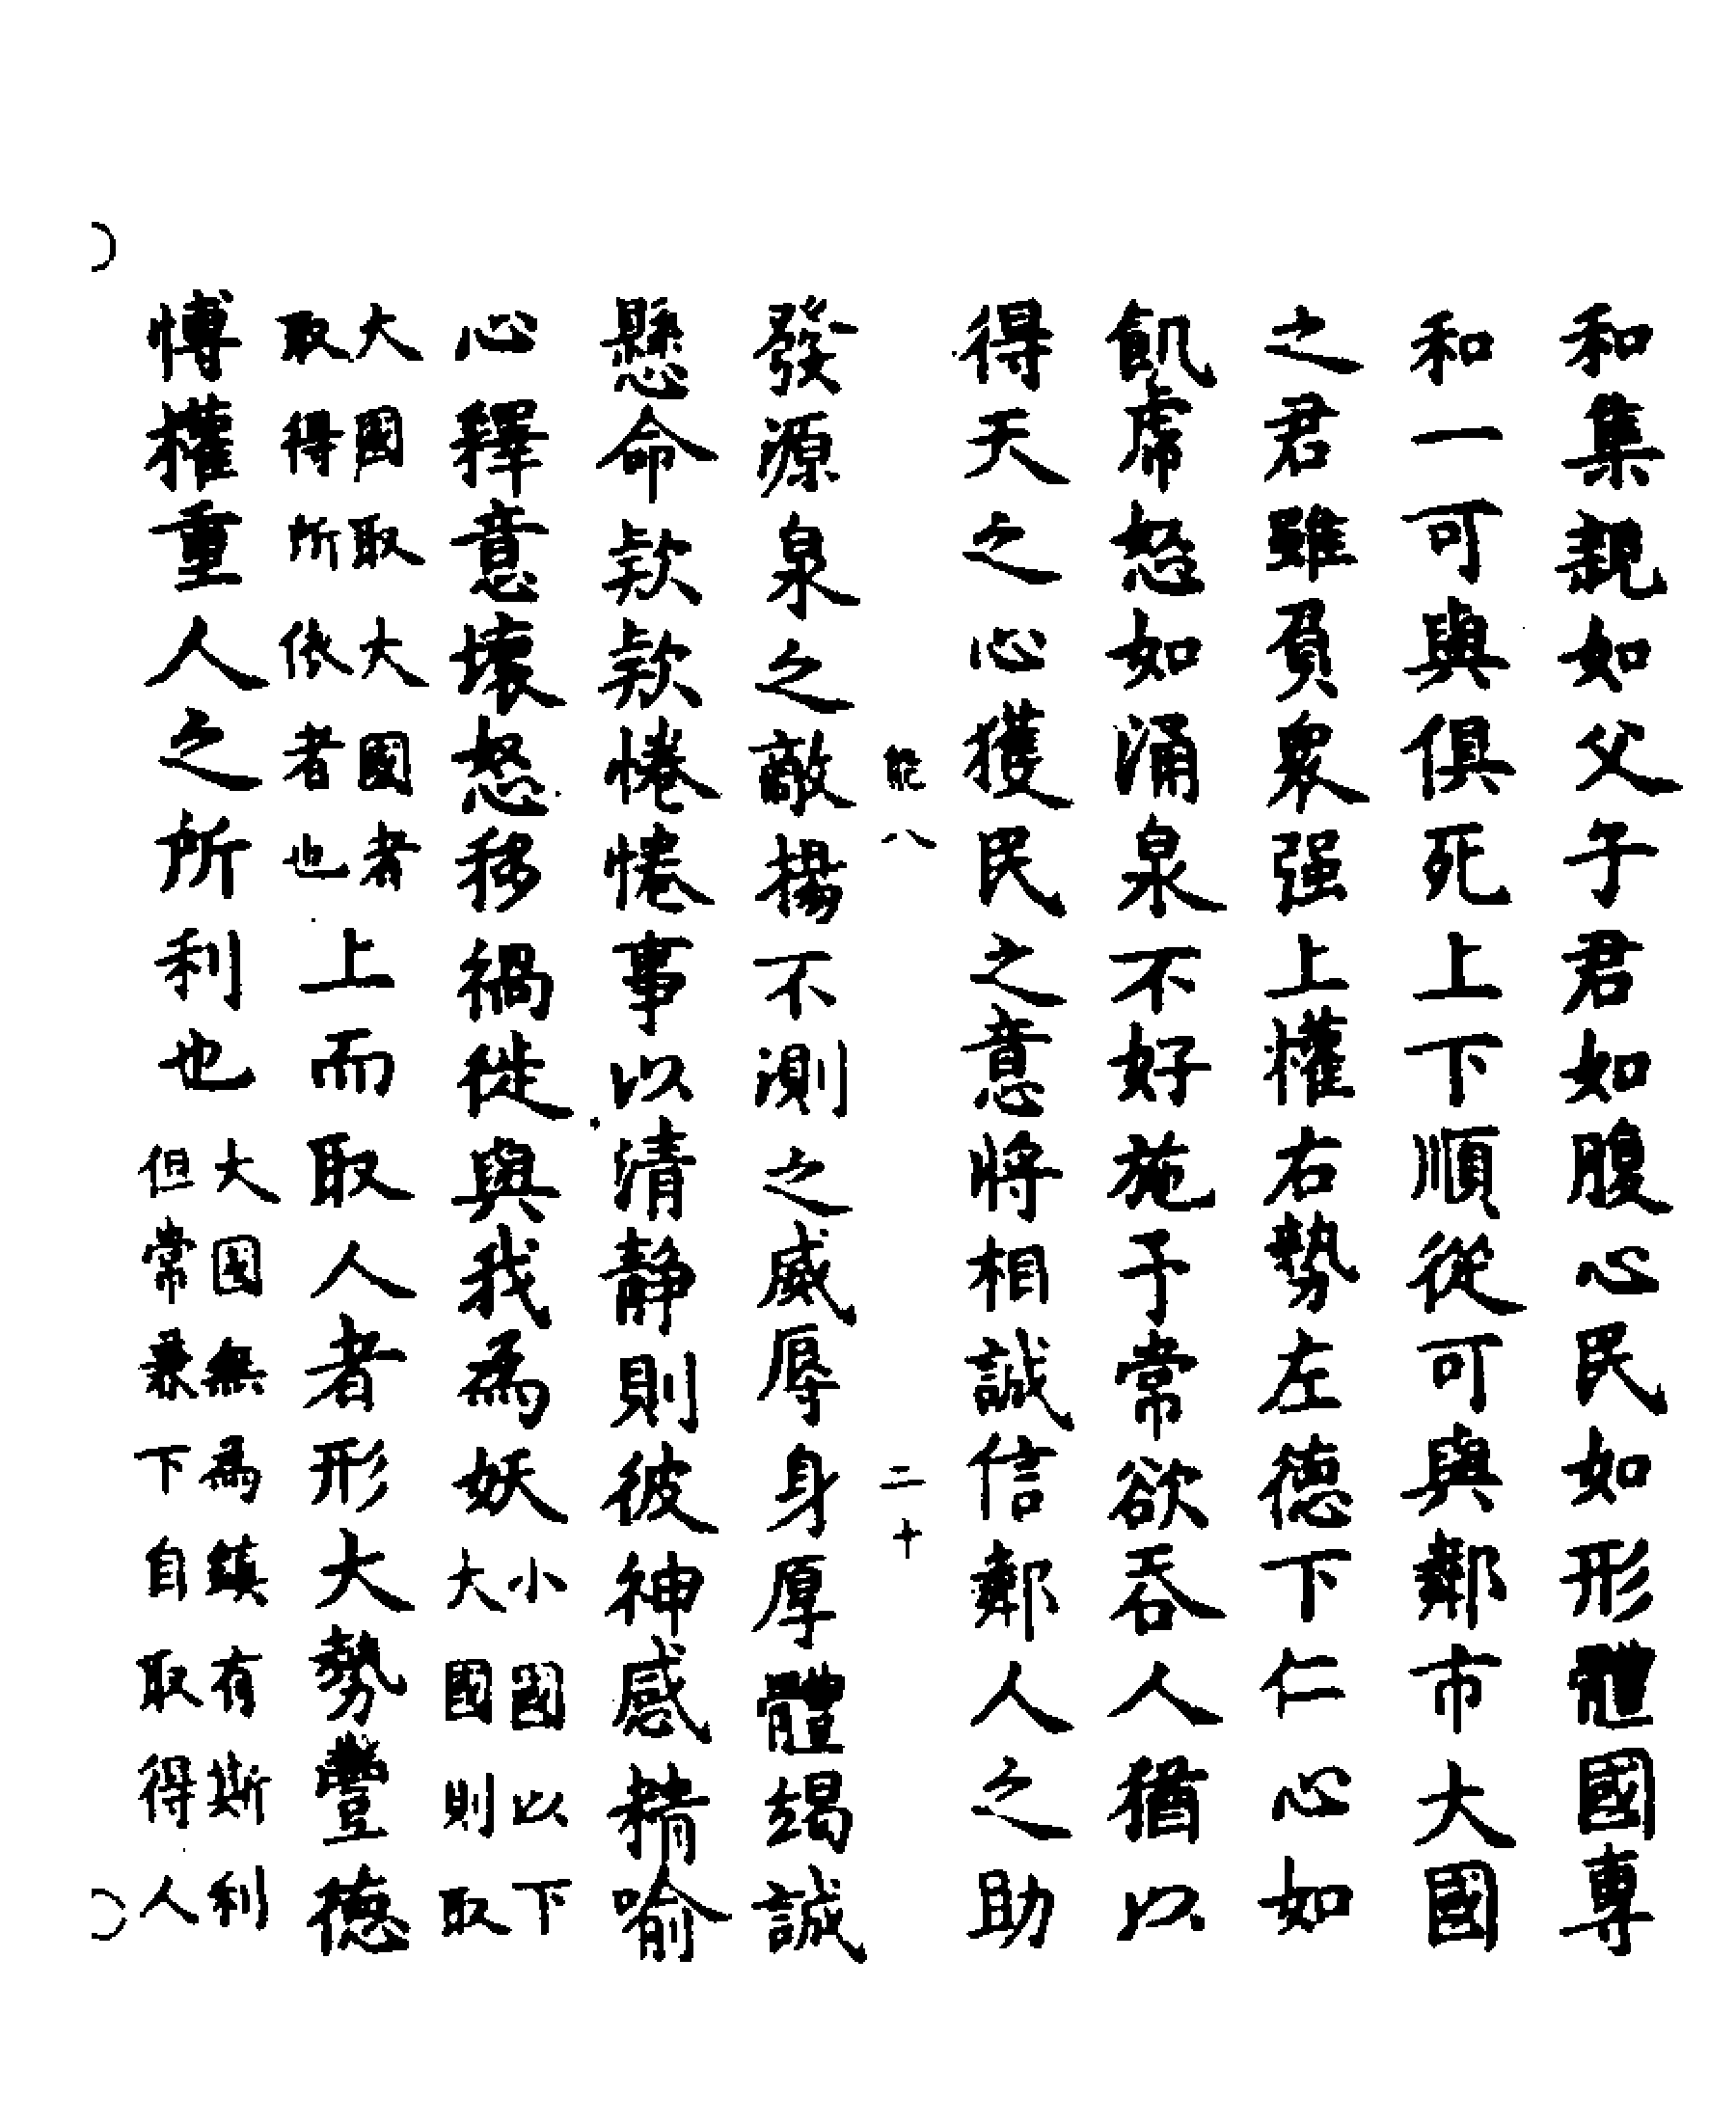 和集親如父子君如腹心民如形體國專
和一可與俱死上下順從可與鄰市大國
之君雖負衆强上權右勢左德下仁心如
飢虎怒如涌泉不好施予常欲吞人猶以
得天之心獲民之意將相誠信鄰人之助
能八 二十
發源泉之敵揚不測之威辱身厚體竭誠
懸命款款惓惓事以清静則彼神感精喻
心釋意壞怒移禍徙與我為妖小國以下
大國則取
大國取大國者
取得所依者也上而取人者形大勢豐德
博權重人之所利也大國無為鎮有斯利
但常兼下自取得人